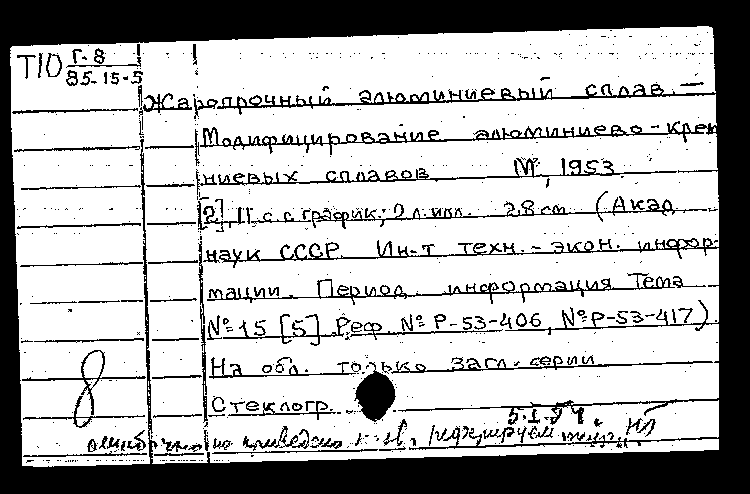 Т10 Г-8
85-15-5
Жаропрочный алюминиевый сплав. —
Модифицирование алюминиево-крем
ниевых сплавов М, 1953
[2], 11 с. с график; 2 л. илл. 28 см (Акад.
наук СССР. Ин-т техн.-экон. инфор-
мации. Период. информация Тема
№ 15 [5] Реф. № Р-53-406, № Р-53-417)
На обл. только загл. серии
8
Стеклогр.
5.I.54.
ошибочно приведено НБ